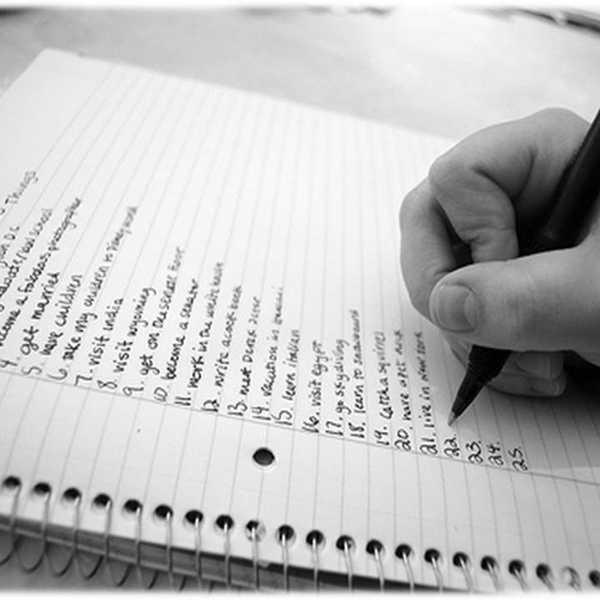 Things
D.C.
graduate/law school
become a fabulous photographer
5. get married
6. have children
take my children to Disney world
7. visit India
8. visit wyoming
9. get on the senate floor
10. become a senator
11. work in the white house
12. write a cook book
13. meet Derek Jeter
14. vacation in
15. learn italian
16. visit Egypt
17. go skydiving
18. learn to snowboard
19. catch a squirrel
20. have a pet duck
21. live in New York
22.
23.
24.
25.